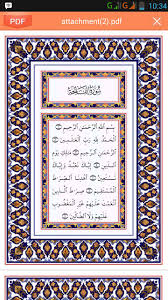 10:34
PDF
attachment(2).pdf
سُورَةُ الْفَاتِحَةِ
بِسْمِ اللَّهِ الرَّحْمَٰنِ الرَّحِيمِ
الْحَمْدُ لِلَّهِ رَبِّ الْعَالَمِينَ
الرَّحْمَٰنِ الرَّحِيمِ مَالِكِ يَوْمِ
الدِّينِ إِيَّاكَ نَعْبُدُ وَإِيَّاكَ
نَسْتَعِينُ اهْدِنَا الصِّرَاطَ
الْمُسْتَقِيمَ صِرَاطَ الَّذِينَ
أَنْعَمْتَ عَلَيْهِمْ غَيْرِ الْمَغْضُوبِ
عَلَيْهِمْ وَلَا الضَّالِّينَ